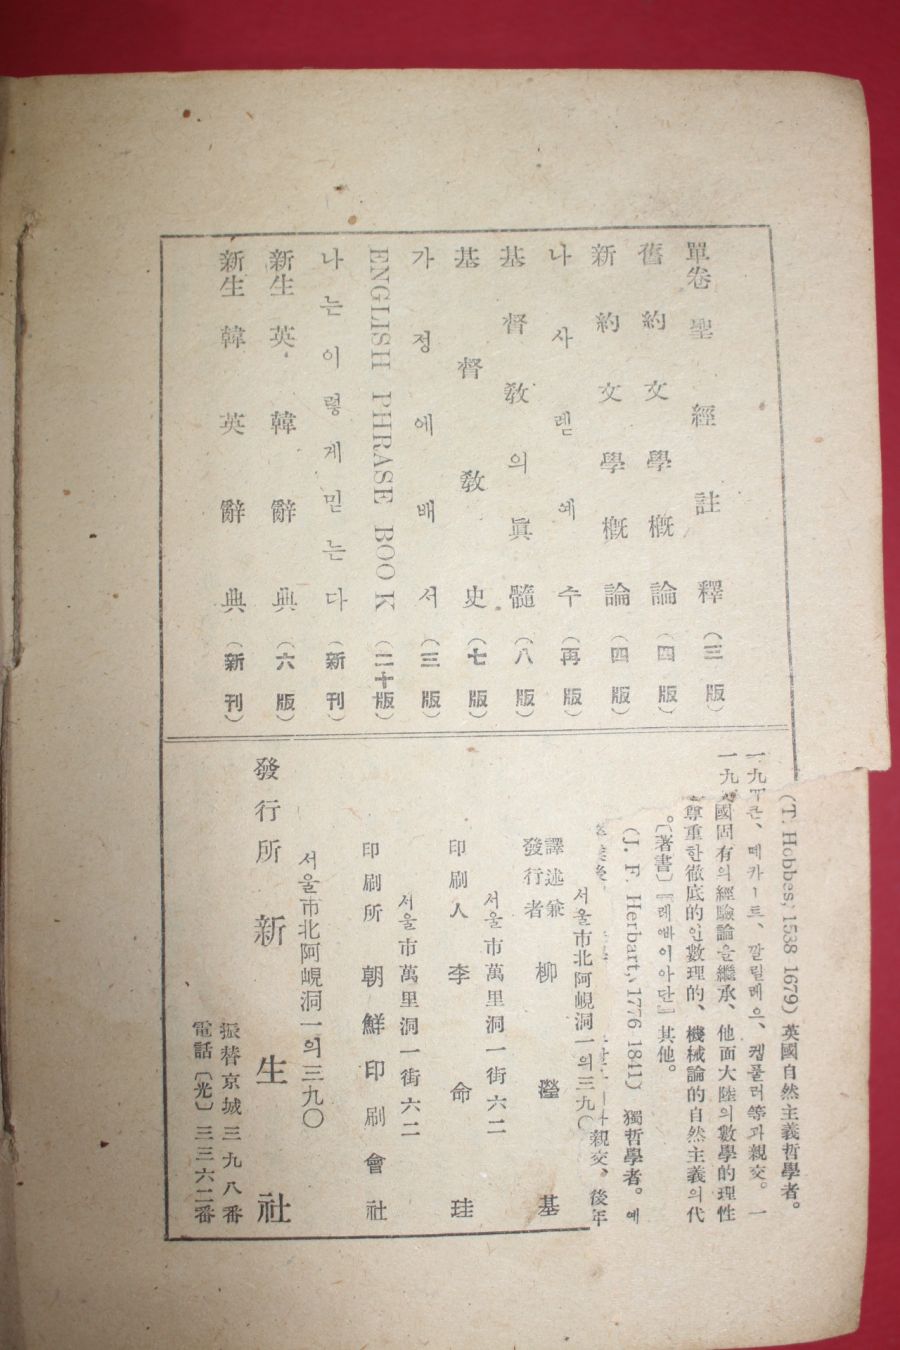 單卷 聖經註釋 (三版)
舊約文學槪論 (四版)
新約文學槪論 (四版)
나사렡 예수 (再版)
基督敎의 眞髓 (八版)
基督敎史 (七版)
가정에 배서 (三版)
ENGLISH PHRASE BOOK (二十版)
나는 이렇게 믿는다 (新刊)
新生 英韓辭典 (六版)
新生 韓英辭典 (新刊)
(T. Hobbes, 1538 1679) 英國自然主義哲學者。
데카ー트、깔릴레으、켑풀러等과 親交。一
國固有의 經驗論을 繼承、他面大陸의 數學的理性
尊重한 徹底的인 數理的、機械論的自然主義의 代
。〔著書〕『레뱌이아단』其他。
(J. F. Herbart, 1776 1841) 獨哲學者。예
親交、後年
서울市北阿峴洞一의三九〇
譯述兼
發行者 柳瀅基
서울市萬里洞一街六二
印刷人 李命珪
서울市萬里洞一街六二
印刷所 朝鮮印刷會社
서울市北阿峴洞一의三九〇
發行所 新生社
振替京城三九八番
電話〔光〕三三六二番